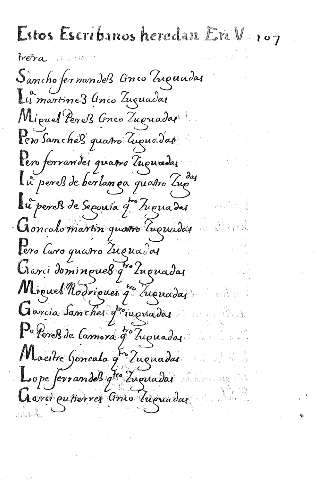 Estos Escribanos heredan En V 107
trera
Sancho ferrandeß Cinco Zuguadas
Ju.ª martineß Cinco Zuguadas
Miguel Pereß Cinco Zuguadas
Pero Sancheß quatro Zuguadas
Pero ferrandes quatro Zuguadas
Ju.ª pereß de berlanga quatro Zugdas
Ju.ª pereß de Segouia qtro Zuguadas
Gonçalo martin quatro Zuguadas
Pero Caro quatro Zuguadas
Garci domingueß qtro Zuguadas
Miguel Rodrigues qtro Zuguadas
Garcia Sanches qtro iuguadas
Po Pereß de Camora qtro Zuguadas
Maestre Goncalo qtro Zuguadas
Lope ferrandeß qtro Zuguadas
Garci gutierres Cinco Zuguadas